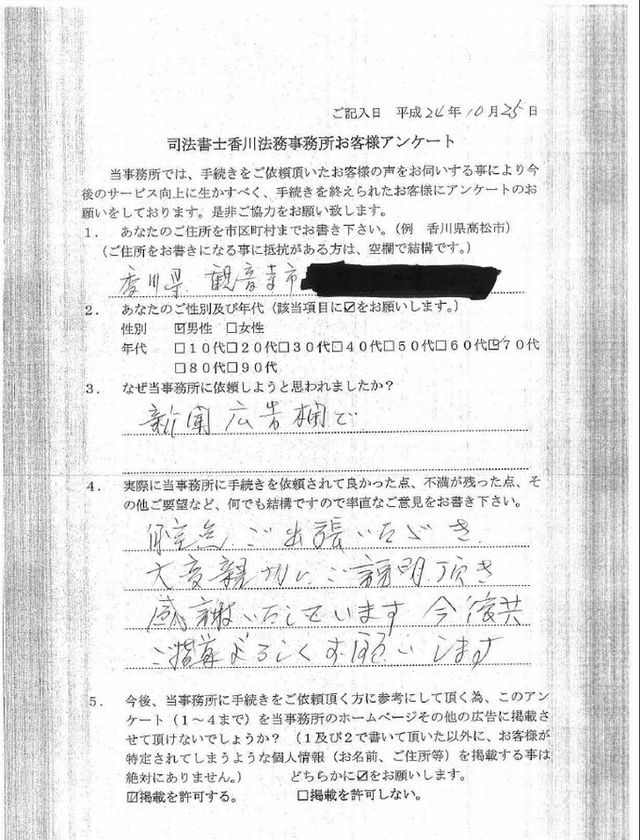 ご記入日 平成24年10月25日
司法書士香川法務事務所お客様アンケート
当事務所では、手続きをご依頼頂いたお客様の声をお伺いする事により今
後のサービス向上に生かすべく、手続きを終えられたお客様にアンケートのお
願いをしております。是非ご協力をお願い致します。
1. あなたのご住所を市区町村までお書き下さい。(例 香川県高松市)
(ご住所をお書きになる事に抵抗がある方は、空欄で結構です。)
香川県 観音寺市
2. あなたのご性別及び年代(該当項目に☑をお願いします。)
性別 ☑男性 □女性
年代 □10代□20代□30代□40代□50代□60代☑70代
□80代□90代
3. なぜ当事務所に依頼しようと思われましたか?
新聞広告欄で
4. 実際に当事務所に手続きを依頼されて良かった点、不満が残った点、そ
の他ご要望など、何でも結構ですので率直なご意見をお書き下さい。
ご出張いただき
大変親切にご説明頂き
感謝いたしています 今後共
ご指導よろしくお願いします
5. 今後、当事務所に手続きをご依頼頂く方に参考にして頂く為、このアン
ケート(1~4まで)を当事務所のホームページその他の広告に掲載させ
て頂けないでしょうか? (1及び2で書いて頂いた以外に、お客様が
特定されてしまうような個人情報(お名前、ご住所等)を掲載する事は
絶対にありません。) どちらかに☑をお願いします。
☑掲載を許可する。 □掲載を許可しない。